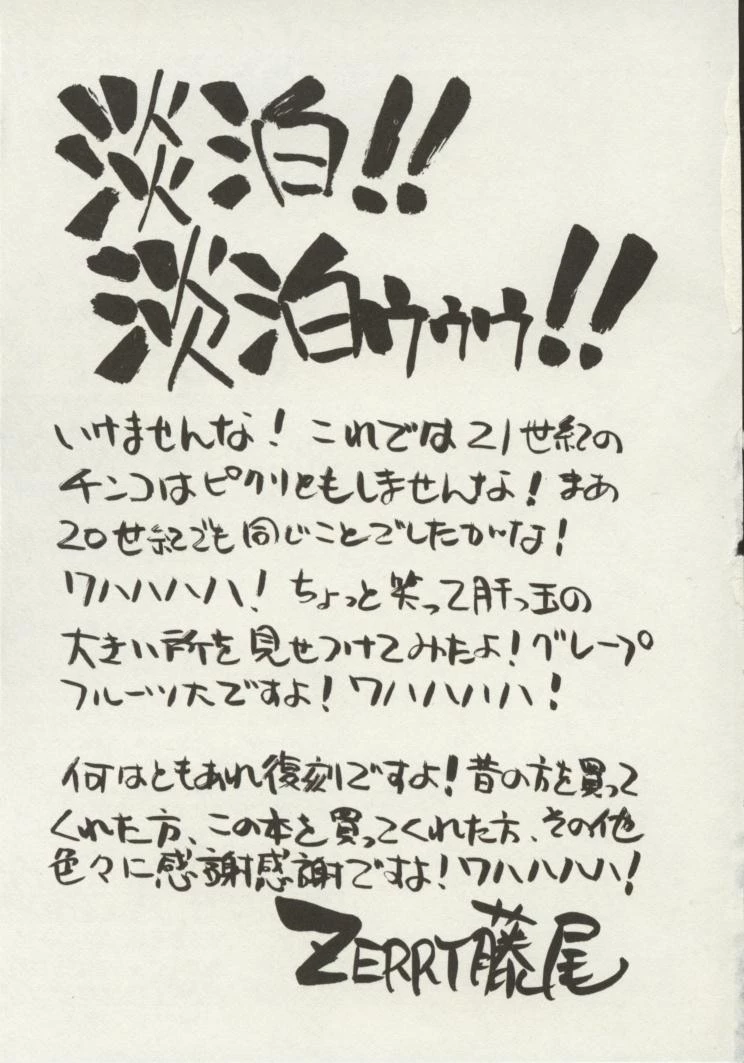 淡泊!!
淡泊ゥゥゥ!!
いけませんな！これでは21世紀の
チンコはピクリともしませんな！まあ
20世紀でも同じことでしたがな！
ワハハハハ！ちょっと笑って肝っ玉の
大きい所を見せつけてみたよ！グレープ
フルーツ大ですよ！ワハハハハ！
何はともあれ復刻ですよ！昔の方を買って
くれた方、この本を買ってくれた方、その他
色々に感謝感謝ですよ！ワハハハハ！
ZERRY藤尾